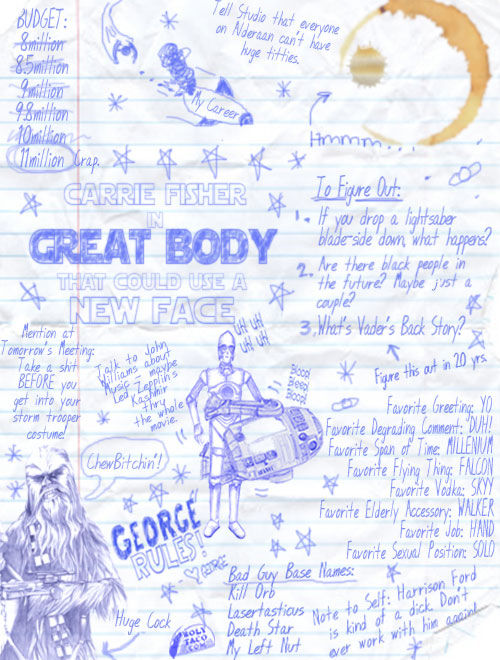 BUDGET:
8million
8.5million
9million
9.8million
10million
11million Crap.
Tell Studio that everyone
on Alderaan can't have
huge titties.
My Career
Hmmm...
CARRIE FISHER
IN
GREAT BODY
THAT COULD USE A
NEW FACE
To Figure Out:
1. If you drop a lightsaber
blade-side down, what happens?
2. Are there black people in
the future? Maybe just a
couple?
3. What's Vader's Back Story?
Figure this out in 20 yrs.
Mention at
Tomorrow's Meeting:
Take a shit
BEFORE you
get into your
storm trooper
costume!
Talk to John
Williams about
Music - maybe
Led Zepplin's
Kashmir
thru
the whole
movie.
UH UH!
UH UH!
Bloop!
Bleep!
Bloop!
ChewBitchin'!
GEORGE
RULES!
GEORGE
Favorite Greeting: YO
Favorite Degrading Comment: "DUH!
Favorite Span of Time: MILLENIUM
Favorite Flying Thing: FALCON
Favorite Vodka: SKYY
Favorite Elderly Accessory: WALKER
Favorite Job: HAND
Favorite Sexual Position: SOLO
Bad Guy Base Names:
Kill Orb
Lasertasticus
Death Star
My Left Nut
Huge Cock
HOLY
TACO
.COM
Note to Self: Harrison Ford
is kind of a dick. Don't
ever work with him again!